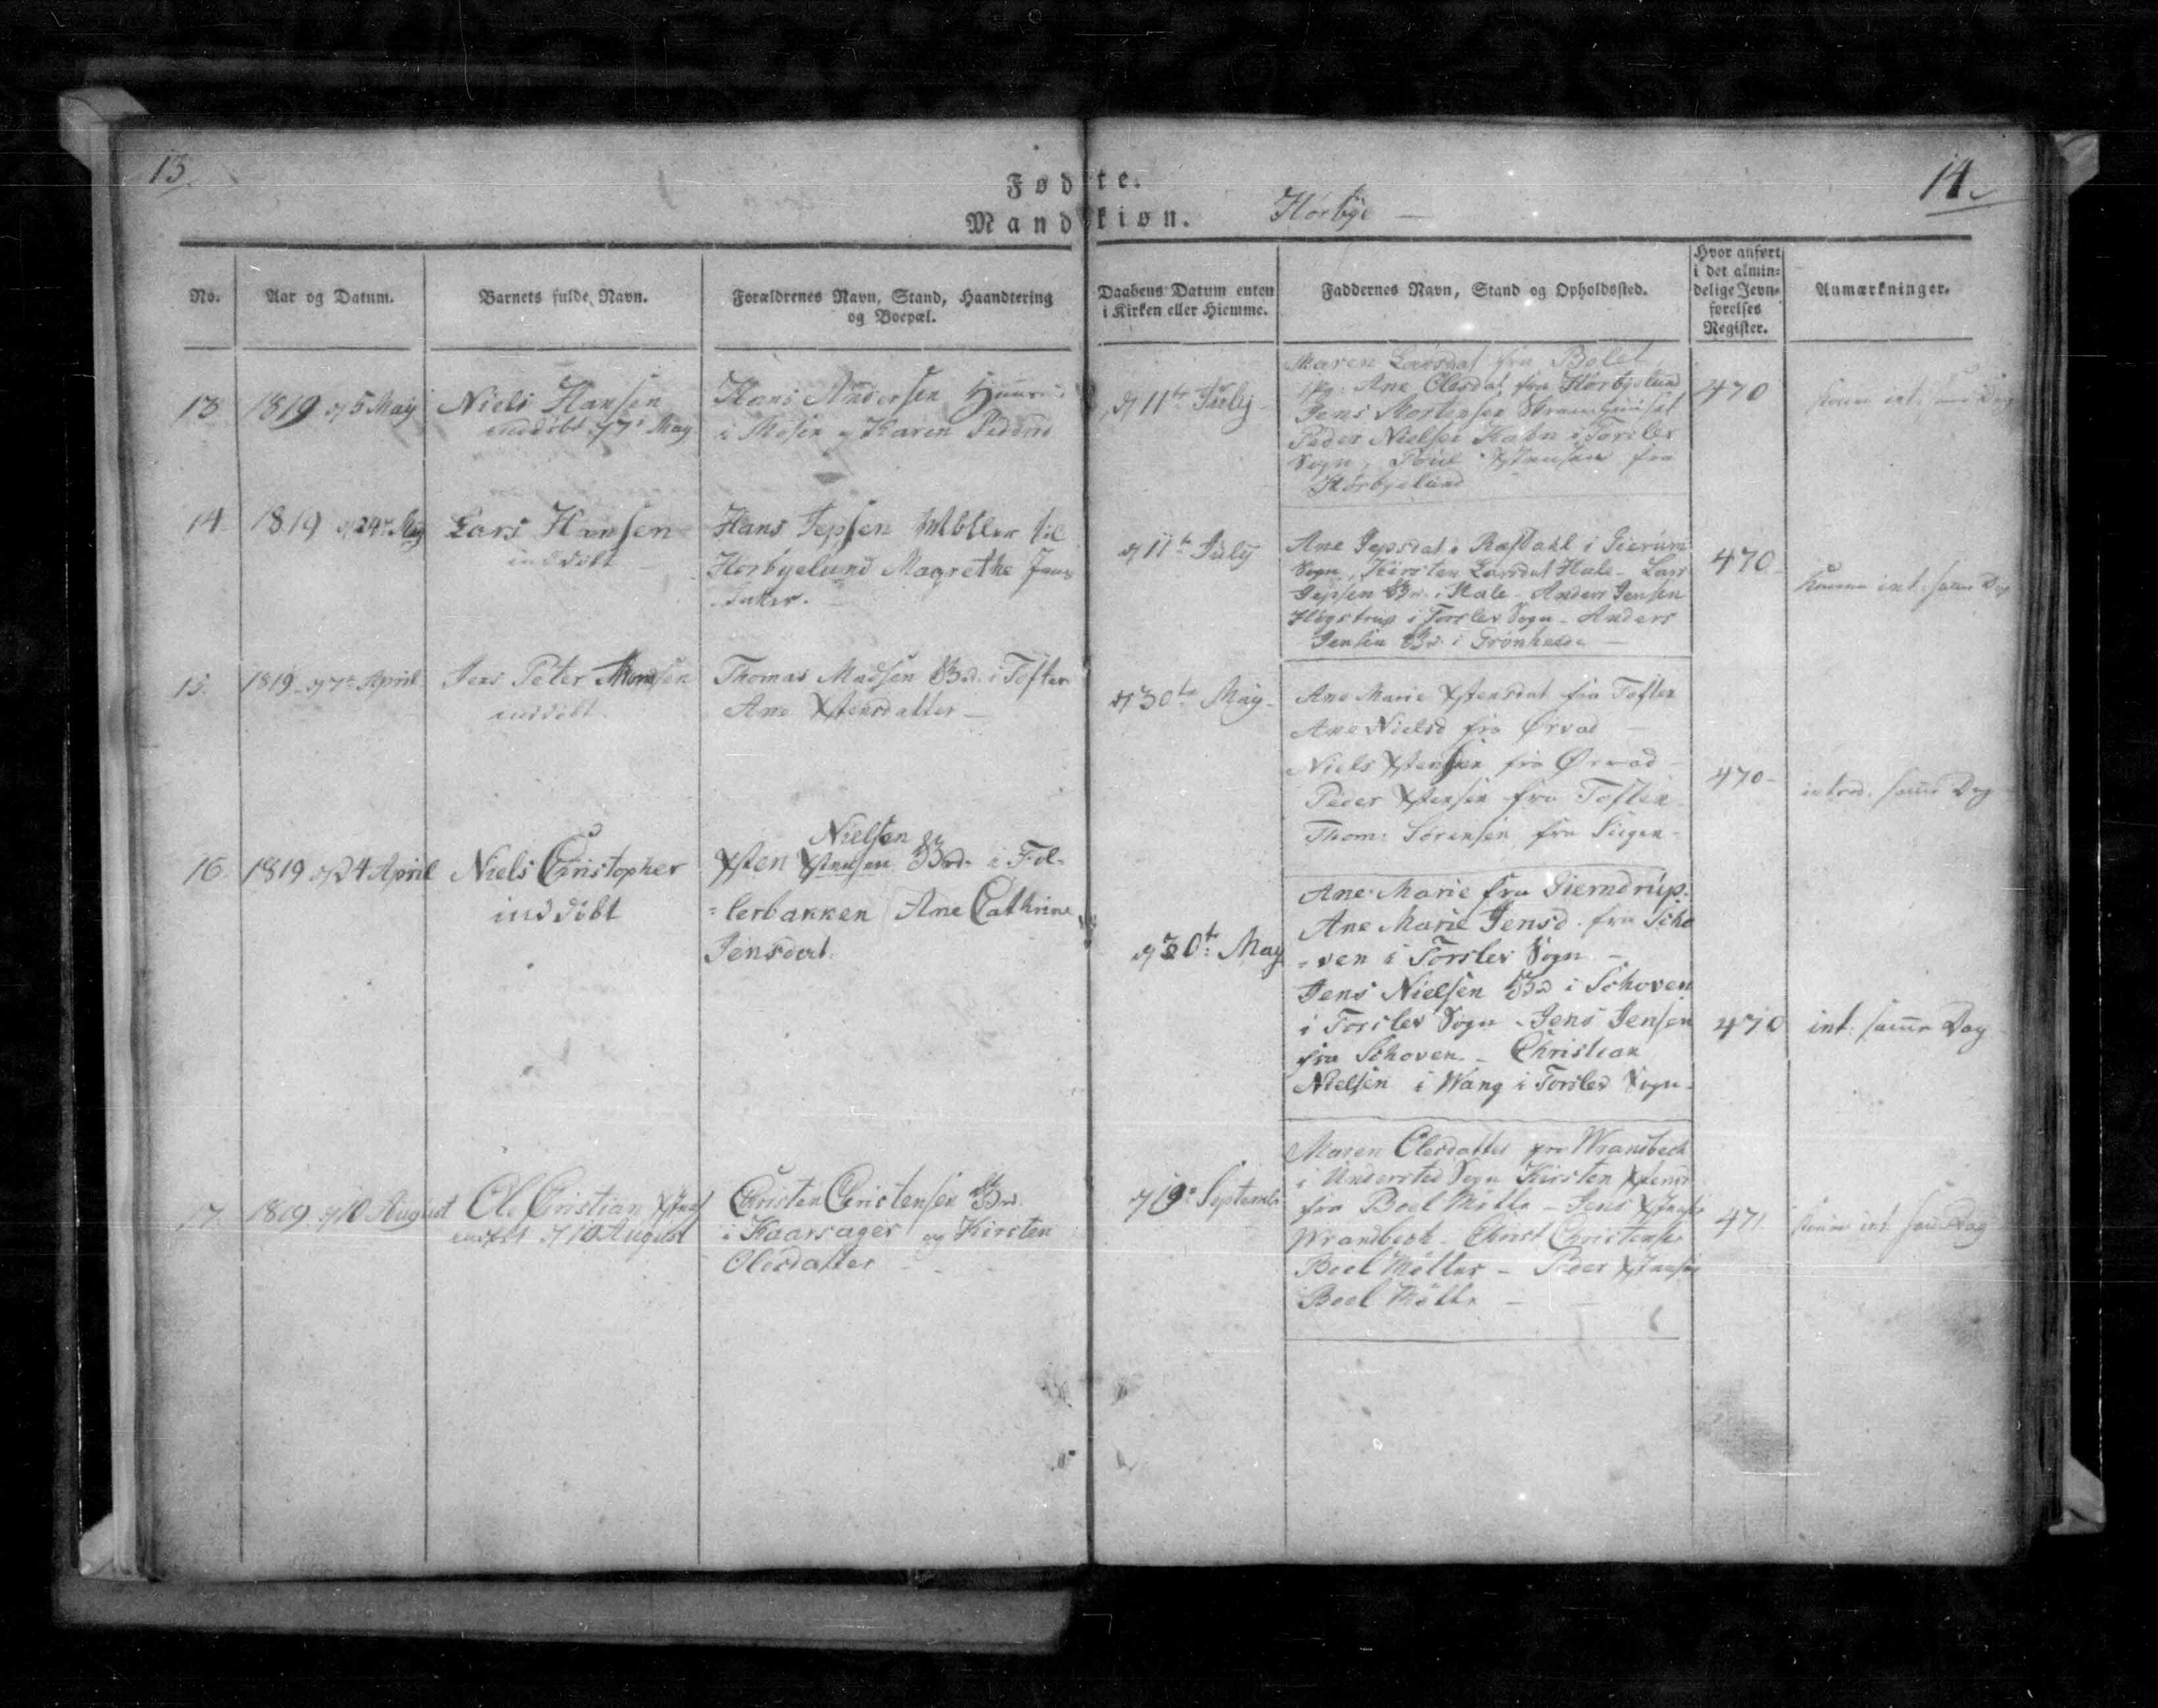 13.
14.
Fødte.
Mandkiøn.
Hørbye
No.
Aar og Datum.
Barnets fulde Navn.
Forældrenes Navn, Stand, Haandtering
og Boepæl.
Daabens Datum enten
i Kirken eller Hiemme.
Faddernes Navn, Stand og Opholdssted.
Hvor anført
i det almin-
delige Jevn-
førelses
Register.
Anmærkninger.
13
1819 d 5 May
Niels Hansen
inddøbt d 7 May
Hans Andersen
i Mosen og Karen
d 11te July
Maren Larsdat fra Bolet
Ane Olesdat fra Hørbyelund
Jens Mortensen
Peder Nielsen i Torslev
Sogn, Poul Xstensen fra
Hørbyelund
470
14.
1819 d 24 May
Lars Hansen
inddøbt
Hans Jepsen Møller til
Hørbyelund Magrethe Jens
datter.
d 11te July
Ane Jepsdat i Gierum
Sogn, Kirsten Larsdat Hale - Lars
Jepsen Bd. i Hale - Anders Jensen
i Torslev Sogn - Anders
Jensen Bd. i Grønhede
470
int. samme Dag
15.
1819 d 7te April
Jens Peter Thomsen
inddøbt
Thomas Madsen Bd. i Toften
Ane Xstensdatter -
d 30te May -
Ane Marie Xstensdat fra Toften
Ane Nielsd fra Ørvad -
Niels Xstensen fra Ørvad -
Peder Xstensen fra Toften
Thom: Sørensen fra
470 -
introd. samme Dag
16.
1819 d 24 April
Niels Christopher
inddøbt
Nielsen
Xsten Xstensen Bd. i Fel-
=lerbakken Ane Cathrine
Jensdat.
d 30te May
Ane Marie fra Gierndrup.
Ane Marie Jensd. fra Scho
=ven i Torslev Sogn -
Jens Nielsen Bd i Schoven
i Torslev Sogn - Jens Jensen
fra Schoven - Christian
Nielsen i Wang i Torslev Sogn -
470
int: samme Dag
17.
1819 d 10 August
Ole Christian
d 10 August
Christen Christensen Bd.
i Kaarsager og Kirsten
Olesdatter
d 19 Septemb
Maren Olesdatter fra Wrandbech
i Understed Sogn Kirsten
fra Boel Mølle - Jens
Wrandbech - Christ Christensen
Boel Møller - Peder Xstensen
Boel Mølle -
471
int. samme Dag